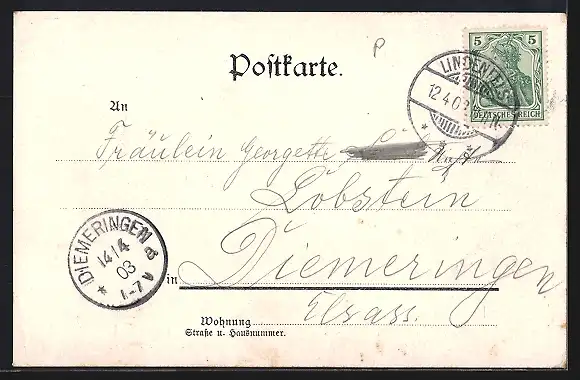 P
Postkarte.
5 5
DEUTSCHES REICH
LINDENFELS
12.4.03
An
Fräulein Georgette
Lobstein
DIEMERINGEN
14/4
03
1-7 V
in Diemeringen
Elsass.
Wohnung
Straße u. Hausnummer.